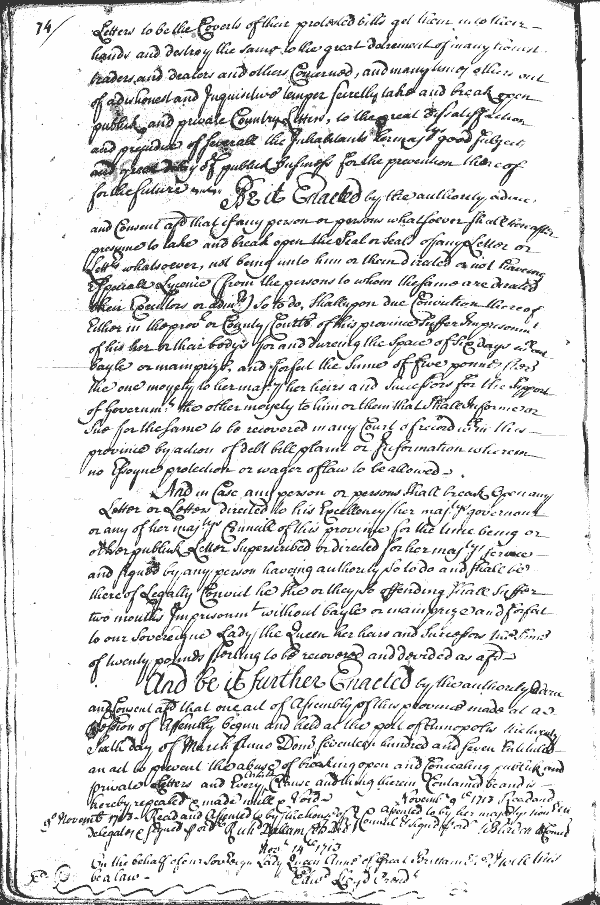 74/
Letters to be the Coverts of their protested bills get them into their
hands and destroy the same to the great detrement of many honest
traders and dealers and others Concerned, and many times others out
of a dishonest and Inquisitive temper secretly take and break open
publick and private Country Letters, to the great dissatisfaction
and prejudice of severall the Inhabitants her majtys good subjects
and great delay of publick business for the prevention thereof
for the future Be it Enacted by the authority advice
and Consent afd that if any person or persons whatsoever shall hereafter
presume to take and break open the Seal or Seals of any Letter or
Letters whatsoever, not being unto him or them directed or not having
Especiall Lycence (from the persons to whom the same are directed
their Executors or admrs) so to do, shall upon due Conviction thereof
Either in the provl or County Courts of this province suffer Imprisonmt
of his her or their bodys for and dureing the space of six days without
bayle or mainprize, and forfeit the sume of five pounds sterl
the one moyety to her majty her heirs and Successors for the Support
of Governmt the other moyety to him or them that shall Informe or
Sue for the same to be recovered in any Court of record within this
province by action of debt bill plaint or Information wherein
no Essoyne protection or wager of law to be allowed.
And in Case any person or persons shall break Open any
Letter or Letters directed to his Excellency her majtys governour
or any of her majtys Councill of this province for the time being or
other publick Letter Superscribed or directed for her majtys service
and signed by any person haveing authority so to do and shall be
thereof Legally Convict he she or they so offending shall suffer
two months Imprisonmt without bayle or mainprize and forfeit
to our Sovereigne Lady the Queen her heirs and Successors the sume
of twenty pounds sterling to be recovered and devided as afd
And be it further Enacted by the authority advice
and Consent afd that one act of Assembly of this province made at a
Session of Assembly begun and held at the port of Annapolis the twenty
Sixth day of March Anno Doni Seventeen hundred and seven Entituled
an act to prevent the abuse of breaking open and Concealing publick and
private Letters and Every Clause and thing therein Contained be and is
hereby repealed & made null & Void.
Novemb 9th 1713 Read and
Assented to by her majestys hon
9th Novemb 1713 Read and Assented to by the house of
delegates & signed pr ord Richd Dallam Cl
Councill & signd pr ord
Novr 14th 1713
On the behalf of our Sovereign Lady Queen Anne of Great Brittain &c I will this
be a law
Edwd Lloyd Presidt